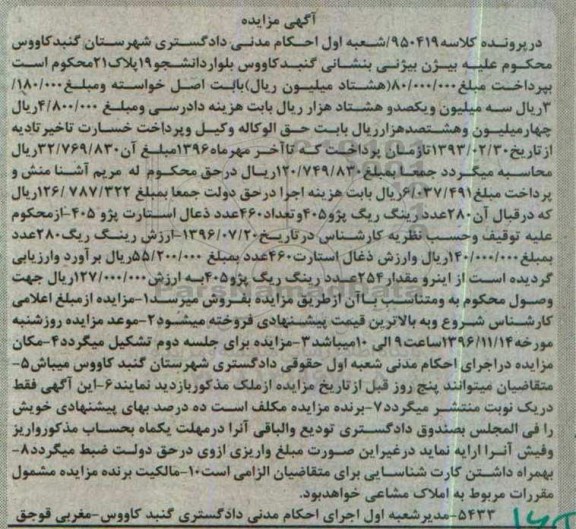 آگهی مزایده
درپرونده کلاسه ۹۵۰۴۱۹/شعبه اول احکام مدنی دادگستری شهرستان گنبدکاووس
محکوم علیه بیژن بیژنی بنشانی گنبدکاووس بلواردانشجو۱۹پلاک۲۱محکوم است
بپرداخت مبلغ۸۰/۰۰۰/۰۰۰(هشتاد میلیون ریال)بابت اصل خواسته ومبلغ۱۸۰/۰۰۰/
۳ریال سه میلیون ویکصدو هشتاد هزار ریال بابت هزینه دادرسی ومبلغ ۴/۸۰۰/۰۰۰ریال
چهارمیلیون وهشتصدهزارریال بابت حق الوکاله وکیل وپرداخت خسارت تاخیرتادیه
ازتاریخ۱۳۹۳/۰۲/۳۰تازمان پرداخت که تاآخر مهرماه۱۳۹۶مبلغ آن۳۲/۷۶۹/۸۳۰ریال
محاسبه میگردد جمعا بمبلغ۱۲۰/۷۴۹/۸۳۰ریال درحق محکوم له مریم آشنا منش و
پرداخت مبلغ۶/۰۳۷/۴۹۱ریال بابت هزینه اجرا درحق دولت جمعا بمبلغ ۱۲۶/۷۸۷/۳۲۲ریال
که درقبال آن۲۸۰عدد رینگ ریگ پژو۴۰۵وتعداد۴۶۰عدد ذغال استارت پژو ۴۰۵-ازمحکوم
علیه توقیف وحسب نظریه کارشناس درتاریخ۱۳۹۶/۰۷/۲۰-ارزش رینگ ریگ۲۸۰عدد
بمبلغ۱۴۰/۰۰۰/۰۰۰ریال وارزش ذغال استارت۴۶۰عدد بمبلغ ۵۵/۲۰۰/۰۰۰ریال برآورد وارزیابی
گردیده است از اینرو مقدار۲۵۴عدد رینگ ریگ پژو۴۰۵به ارزش۱۲۷/۰۰۰/۰۰۰ریال جهت
وصول محکوم به ومتناسب باآن ازطریق مزایده بفروش میرسد۱-مزایده ازمبلغ اعلامی
کارشناس شروع وبه بالاترین قیمت پیشنهادی فروخته میشود۲-موعد مزایده روزشنبه
مورخه۱۳۹۶/۱۱/۱۴ساعت۹الی ۱۰میباشد۳-مزایده برای جلسه دوم تشکیل میگردد۴-مکان
مزایده دراجرای احکام مدنی شعبه اول حقوقی دادگستری شهرستان گنبد کاووس میباش۵-
متقاضیان میتوانند پنج روز قبل ازتاریخ مزایده ازملک مذکوربازدید نمایند۶-این آگهی فقط
دریک نوبت منتشر میگردد۷-برنده مزایده مکلف است ده درصد بهای پیشنهادی خویش
را فی المجلس بصندوق دادگستری تودیع والباقی آنرا درمهلت یکماه بحساب مذکورواریز
وفیش آنرا ارایه نماید درغیراین صورت مبلغ واریزی ازوی درحق دولت ضبط میگردد۸-
بهمراه داشتن کارت شناسایی برای متقاضیان الزامی است۱۰-مالکیت برنده مزایده مشمول
مقررات مربوط به املاک مشاعی خواهدبود.
۵۴۳۳-مدیرشعبه اول اجرای احکام مدنی دادگستری گنبد کاووس-مغربی قوجق